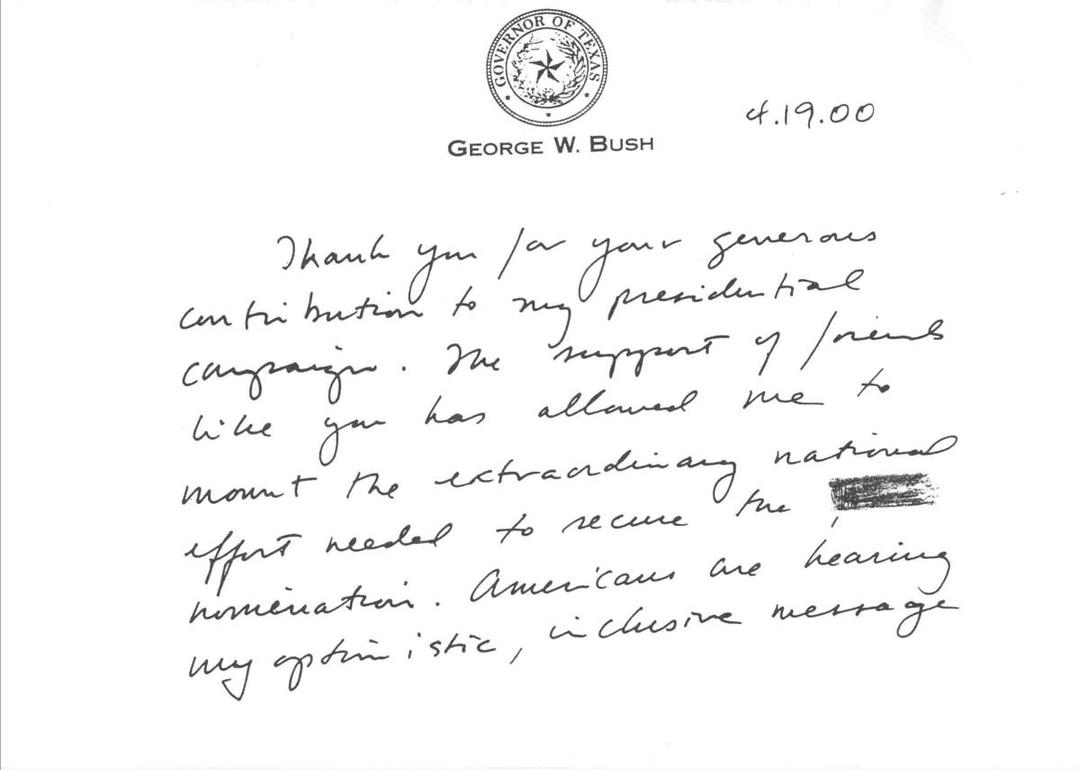 GOVERNOR OF TEXAS
GEORGE W. BUSH
4.19.00
Thank you for your generous
contribution to my presidential
campaign. The support of friends
like you has allowed me to
mount the extraordinary national
effort needed to secure the
nomination. Americans are hearing
my optimistic, inclusive message